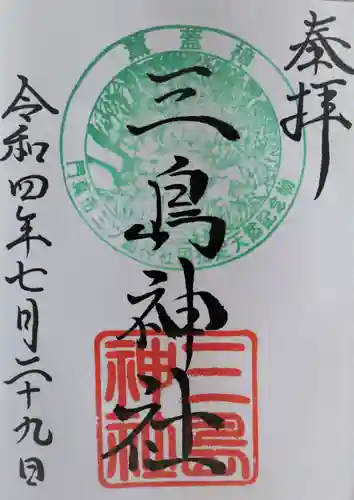 奉拝
三島神社
令和四年七月二十九日
三島
神社